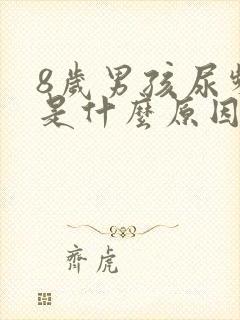 8歲男孩尿
是什麼原因
齊虎